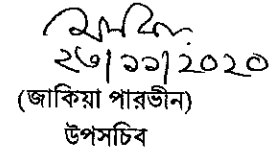 ২৬|১১|২০২০
(জাকিয়া পারভীন)
উপসচিব